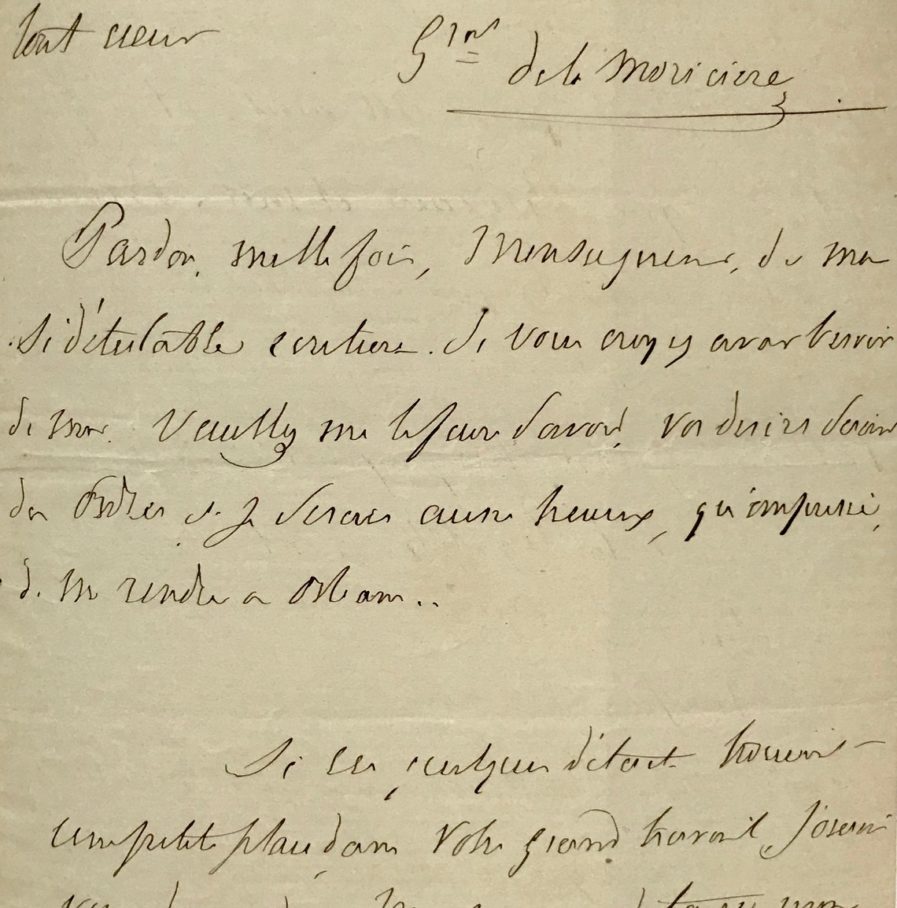 tout cœur
Gral de la Moriciere
Pardon, mille fois, Monseigneur, de ma
si détestable écriture. Si vous croyez avoir besoin
de moi. Veuillez me le faire savoir, vos desirs seront
des Ordres et je serais aussi heureux, qu'empressé,
de me rendre a Orleans..
Si ces quelques détails trouvoient
une petite place, dans votre grand travail, j'oserai